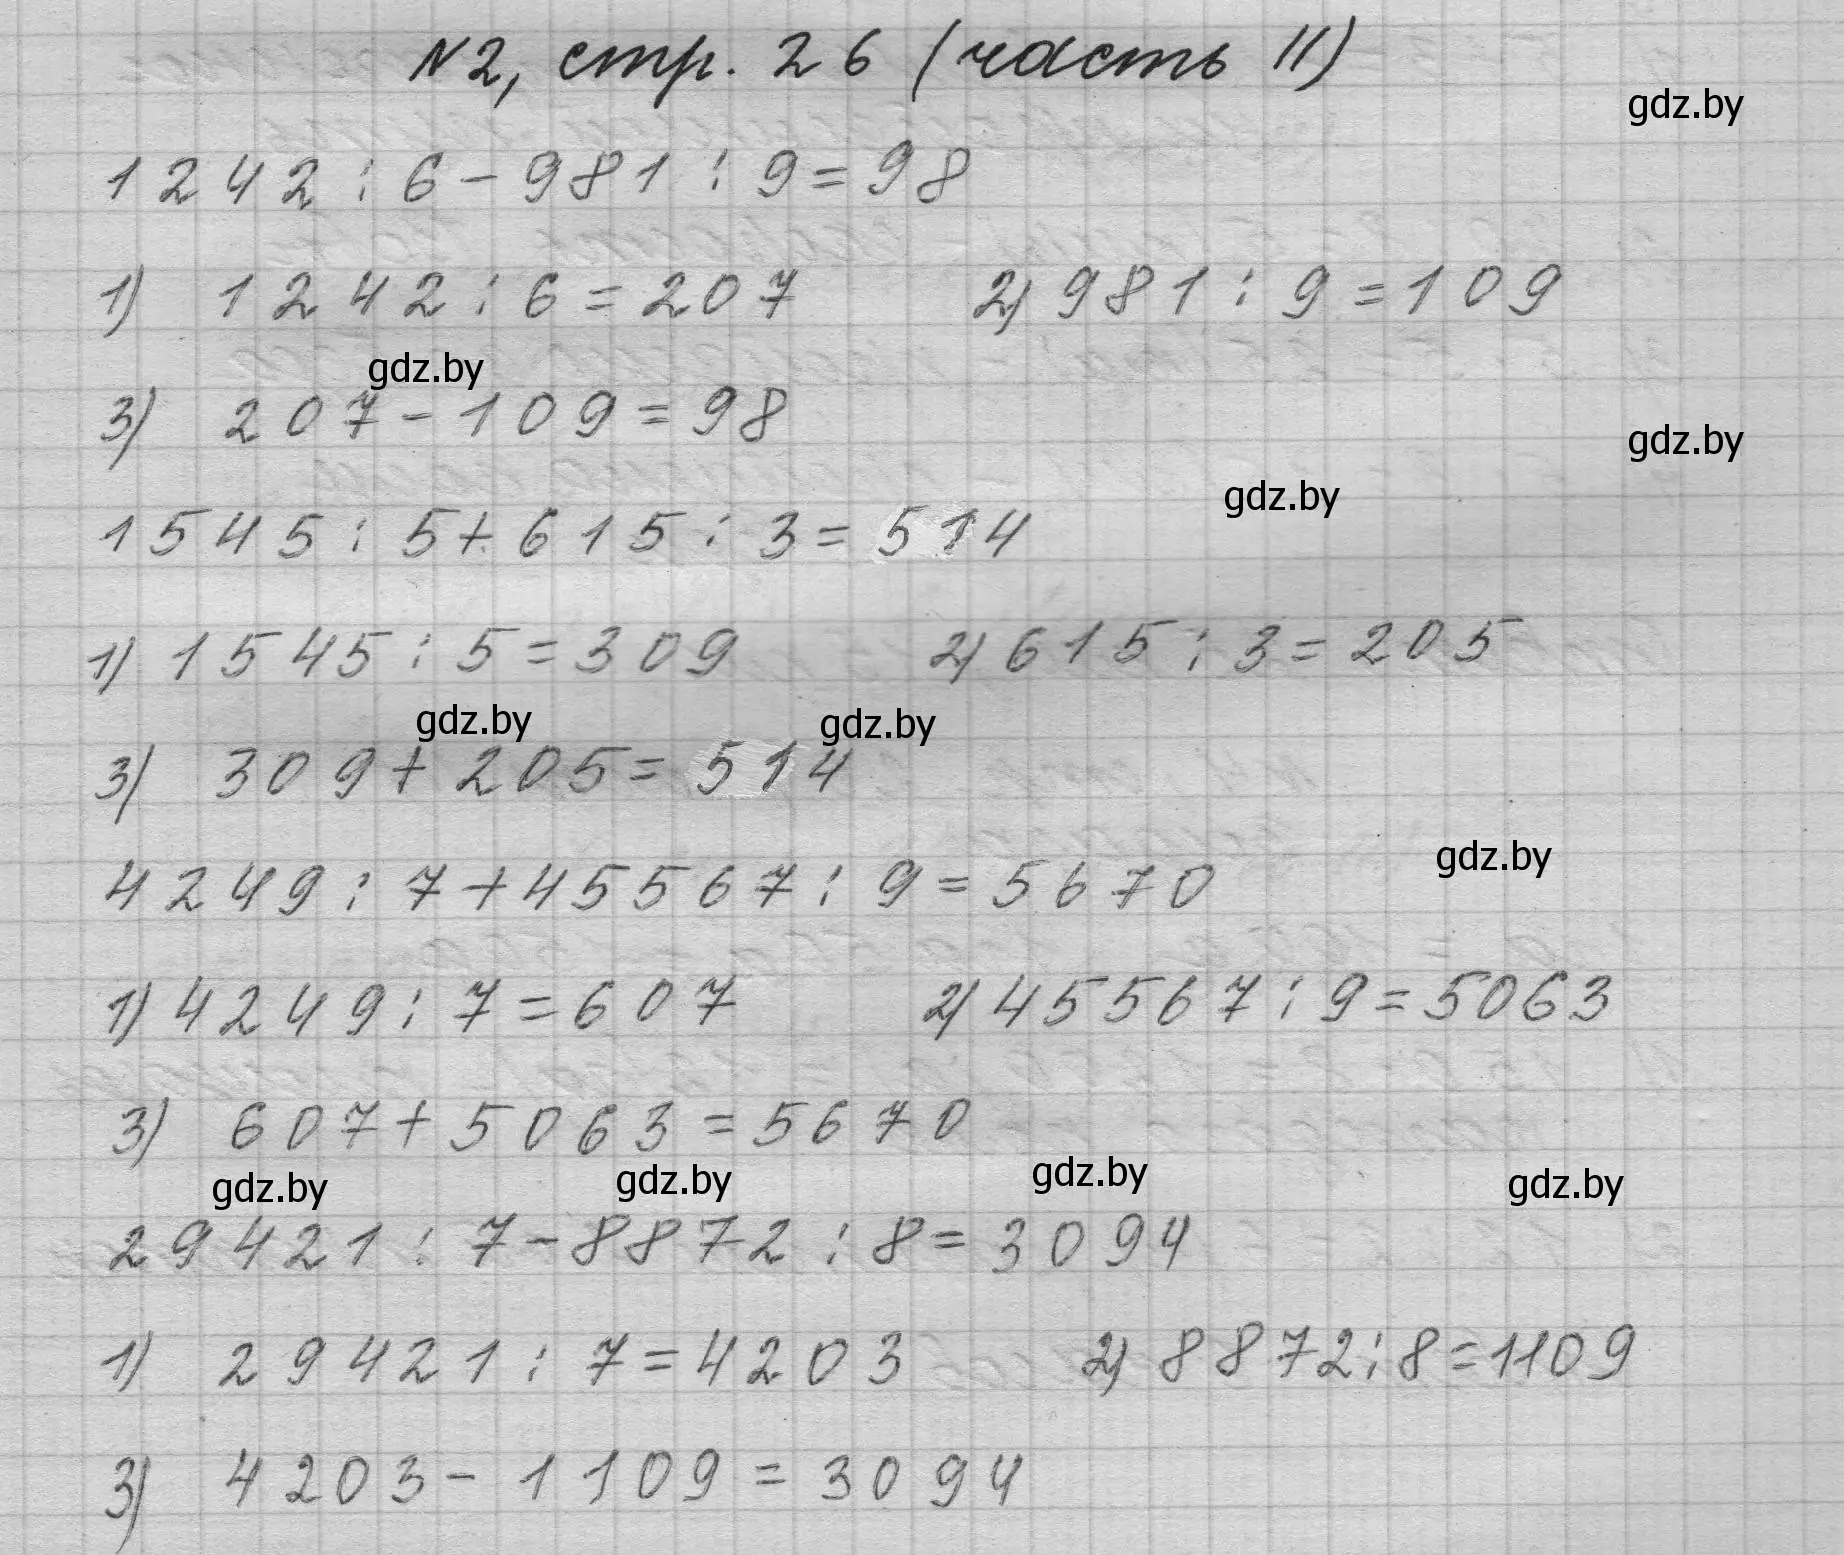 N2, стр. 26 (часть II)
gdz.by
1242 : 6 - 981 : 9 = 98
1) 1242 : 6 = 207 2) 981 : 9 = 109
gdz.by
3) 207 - 109 = 98
gdz.by
gdz.by
1545 : 5 + 615 : 3 = 514
1) 1545 : 5 = 309 2) 615 : 3 = 205
gdz.by gdz.by
3) 309 + 205 = 514
gdz.by
4249 : 7 + 45567 : 9 = 5670
1) 4249 : 7 = 607 2) 45567 : 9 = 5063
3) 607 + 5063 = 5670
gdz.by gdz.by gdz.by gdz.by
29421 : 7 - 8872 : 8 = 3094
1) 29421 : 7 = 4203 2) 8872 : 8 = 1109
3) 4203 - 1109 = 3094